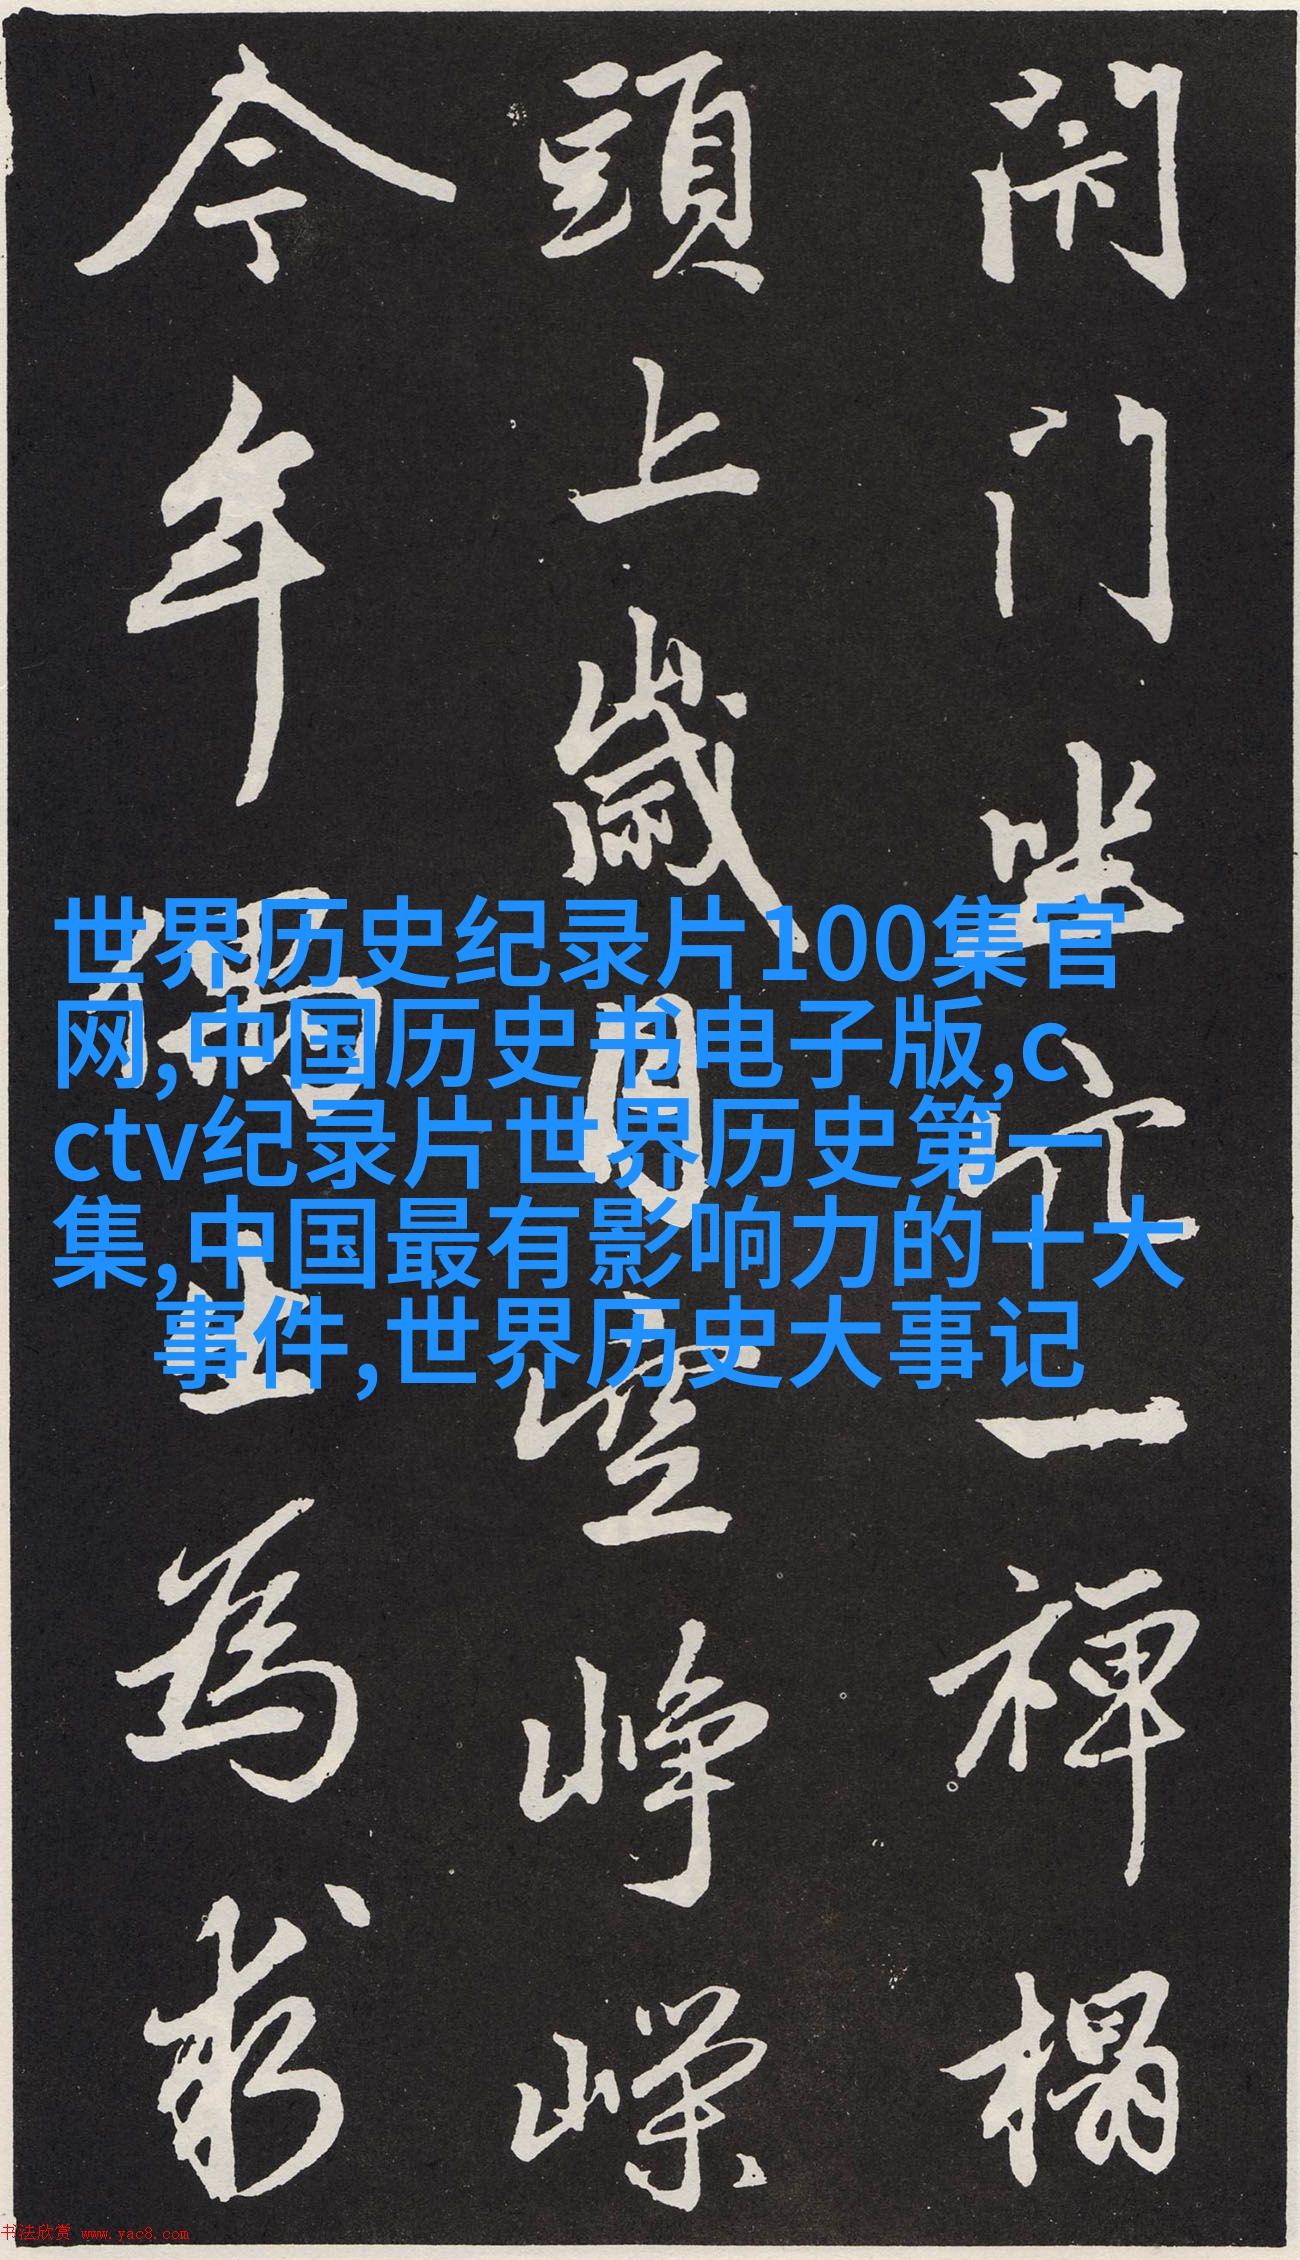 闭门坐穴一禅榻
頭上歲月空峥嵘
今年偶出為求
世界历史纪录片100集官
网,中国历史书电子版,c
ctv纪录片世界历史第一
集,中国最有影响力的十大
事件,世界历史大事记
书法欣赏 www.yac8.com